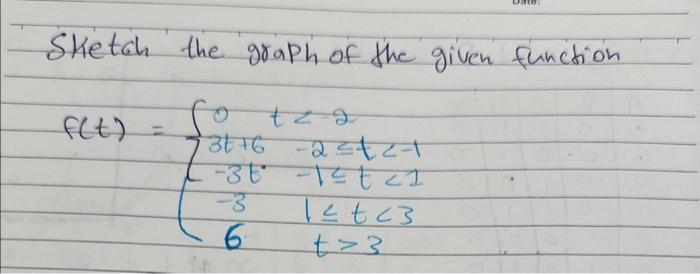 Date:
Sketch the graph of the given function
f(t) = { 0 t < -2
3t+6 -2 ≤ t < -1
-3t -1 ≤ t < 1
-3 1 ≤ t < 3
6 t > 3